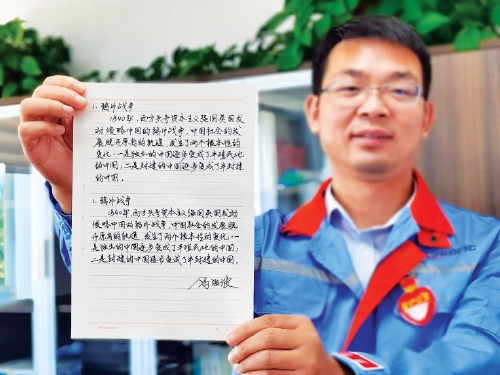 1. 鸦片战争
1840年,西方头号资本主义强国英国发
动侵略中国的鸦片战争,中国社会的发
展脱开原有的轨道,发生了两个根本性的
变化:一是独立的中国逐步变成了半殖民地
的中国;二是封建的中国逐步变成了半封建
的中国。
1. 鸦片战争
1840年,西方头号资本主义强国英国发动
侵略中国的鸦片战争,中国社会的发展脱
开原有的轨道,发生了两个根本性的变化:一
是独立的中国逐步变成了半殖民地的中国;
二是封建的中国逐步变成了半封建的中国。